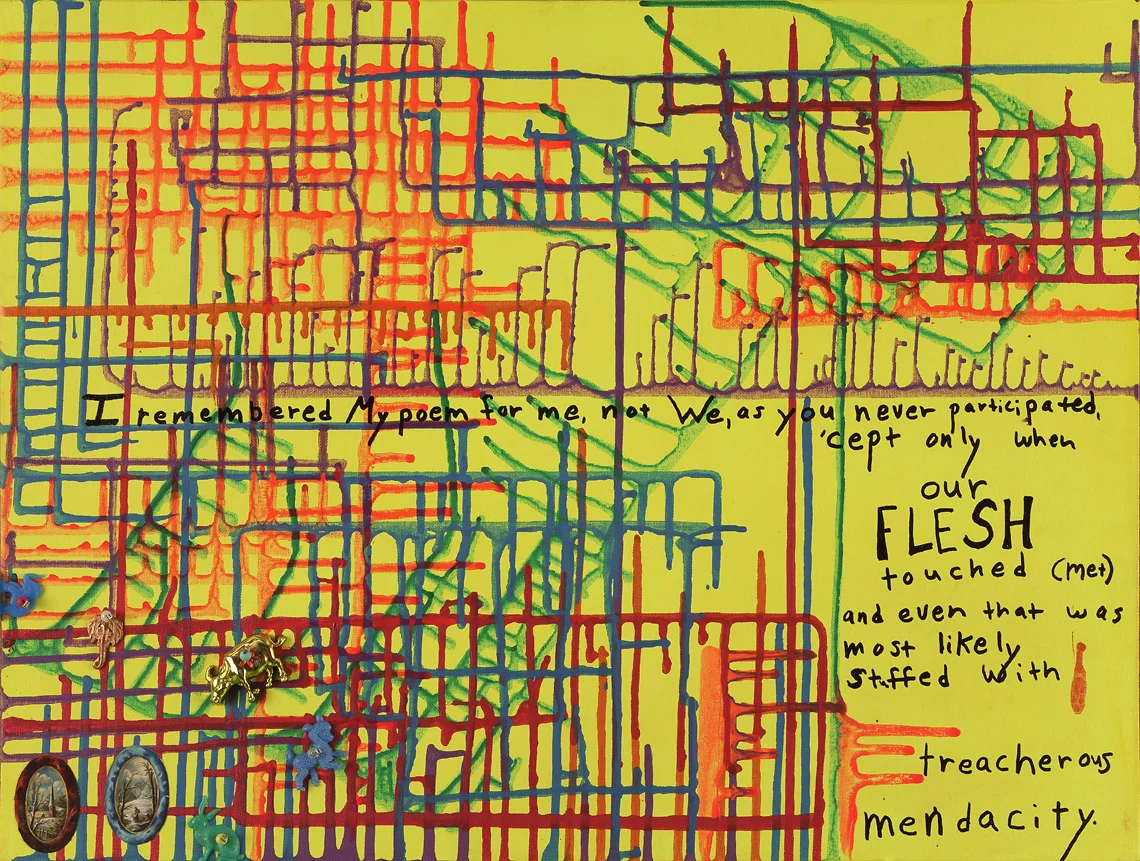 I remembered My poem for me, not We, as you never participated,
'cept only when
our
FLESH
touched (met)
and even that was
most likely
stuffed with
treacherous
mendacity.